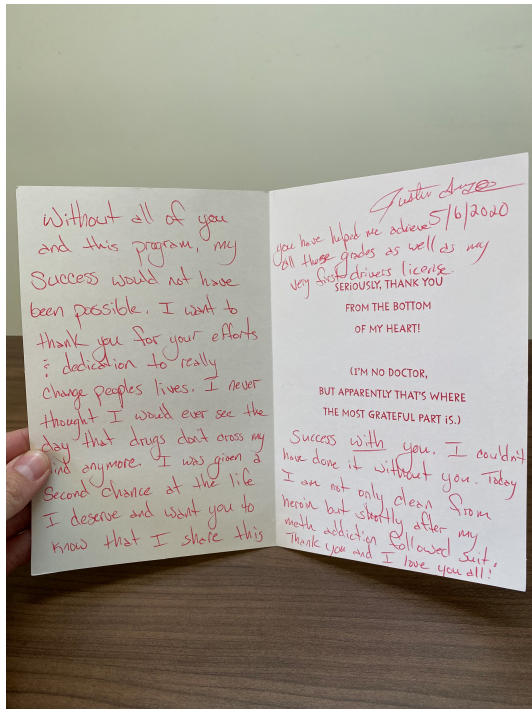 Without all of you
and this program, my
Success would not have
been possible. I want to
thank you for your efforts
& dedication to really
change peoples lives. I never
thought I would ever see the
day that drugs don't cross my
mind anymore. I was given a
second chance at the life
I deserve and want you to
know that I share this
5/6/2020
you have helped me achieve
all these grades as well as my
very first drivers license.
SERIOUSLY, THANK YOU
FROM THE BOTTOM
OF MY HEART!
(I'M NO DOCTOR,
BUT APPARENTLY THAT'S WHERE
THE MOST GRATEFUL PART IS.)
Success with you. I couldn't
have done it without you. Today
I am not only clean from
heroin but shortly after my
meth addiction followed suit.
Thank you and I love you all!"